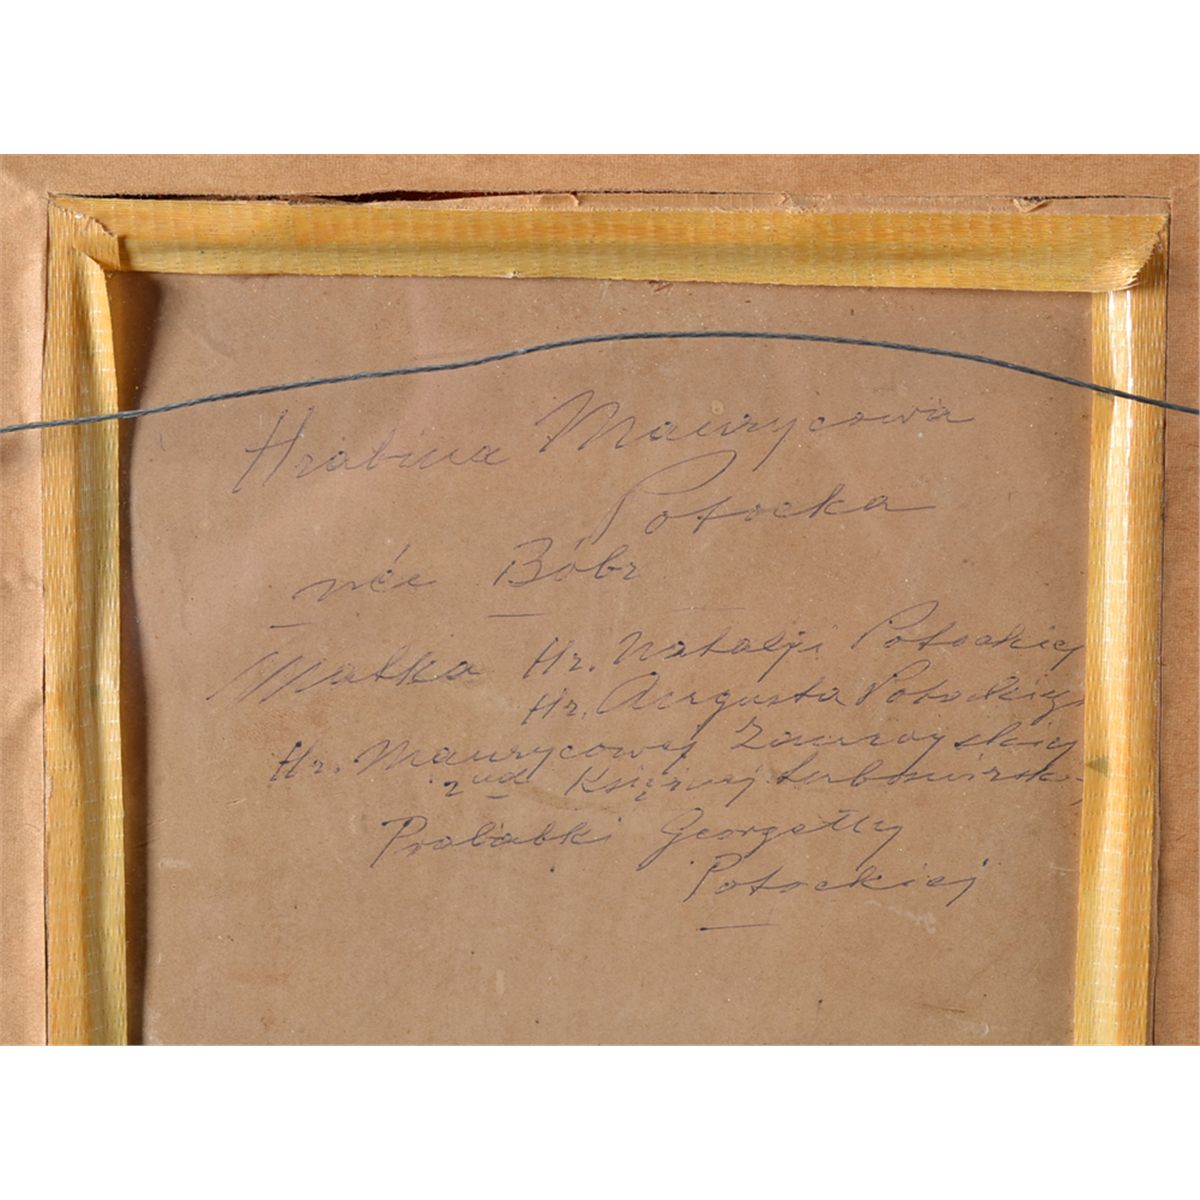 Hrabina Maurycowa
Potocka
née Bóbr
Matka Hr. Natalji Potockiej
Hr. Augusta Potockiego
Hr. Maurycowej Zamoyskiej
2nd Księżnej Lubomirskiej
Prababki Georgetty
Potockiej